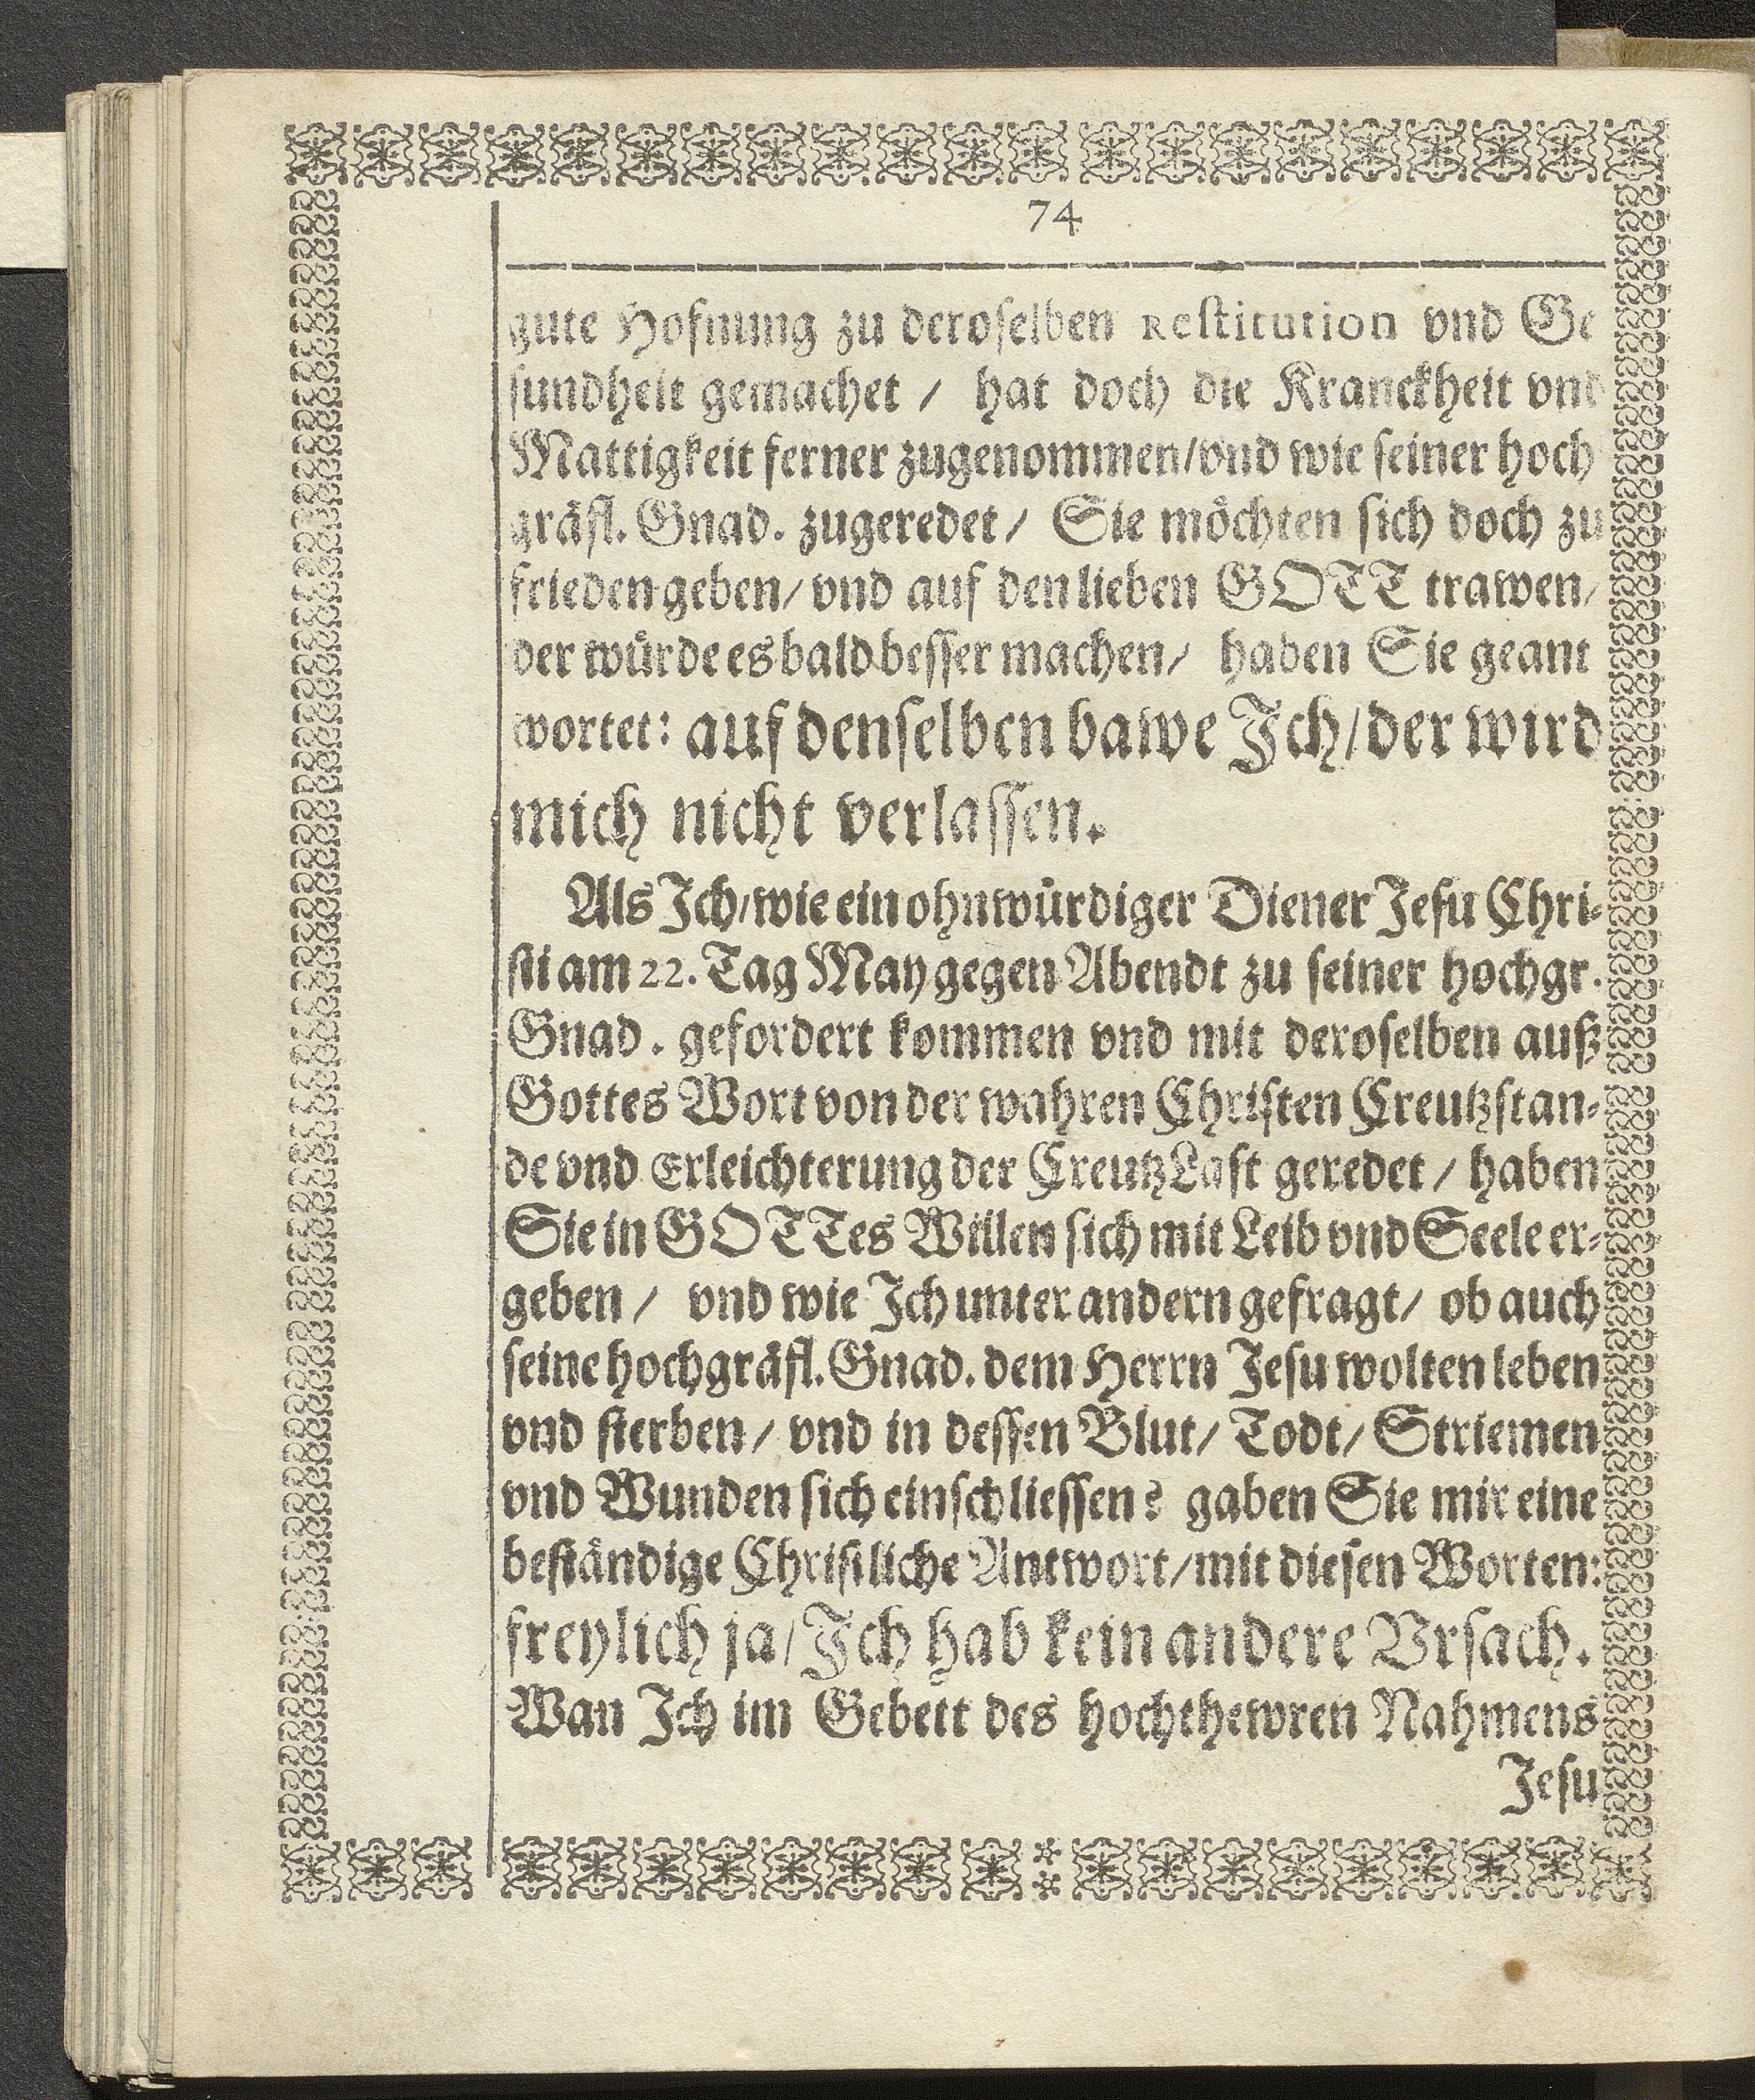 74
gute Hofnung zu deroselben Restitution vnd Ge
sundheit gemachet / hat doch die Kranckheit vnd
Mattigkeit ferner zugenommen/vnd wie seiner hoch
gräfl. Gnad. zugeredet/ Sie möchten sich doch zu
frieden geben/ vnd auf den lieben GOTT trawen/
der würde es bald besser machen/ haben Sie geant
wortet: auf denselben bawe Ich/der wird
mich nicht verlassen.
Als Ich/wie ein ohnwürdiger Diener Jesu Chri-
sti am 22. Tag May gegen Abendt zu seiner hochgr.
Gnad. gefordert kommen vnd mit deroselben auß
Gottes Wort von der wahren Christen Creutzstan-
de vnd Erleichterung der CreutzLast geredet / haben
Sie in GOTTes Willen sich mit Leib vnd Seele er-
geben / vnd wie Ich unter andern gefragt/ ob auch
seine hochgräfl. Gnad. dem Herrn Jesu wolten leben
vnd sterben/ vnd in dessen Blut/ Todt/ Striemen
vnd Wunden sich einschliessen? gaben Sie mir eine
beständige Christliche Antwort/mit diesen Worten:
freylich ja/Ich hab kein andere Vrsach.
Wan Ich im Gebett des hochthewren Nahmens
Jesu